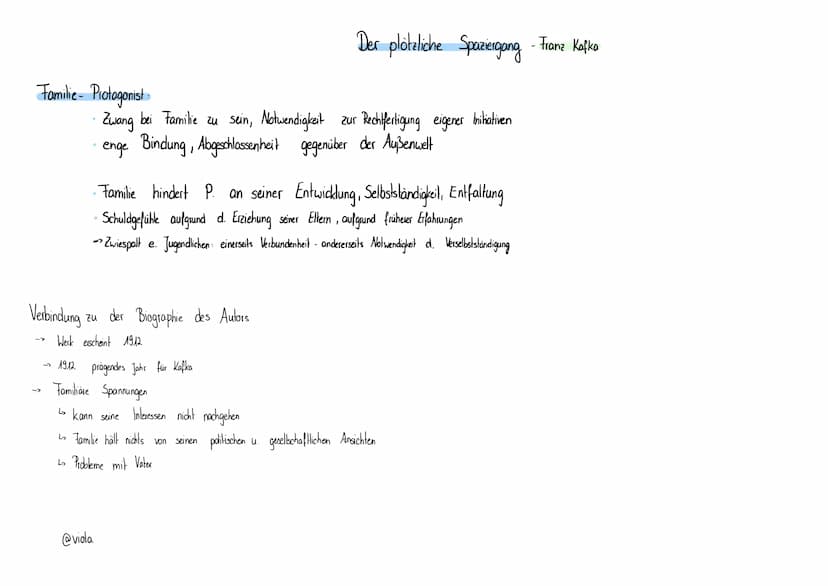 Der plötzliche Spaziergang - Franz Kafka
Familie - Protagonist:
· Zwang bei Familie zu sein, Notwendigkeit zur Rechtfertigung eigener Initiativen
· enge Bindung, Abgeschlossenheit gegenüber der Außenwelt
· Familie hindert P. an seiner Entwicklung, Selbstständigkeit, Entfaltung
· Schuldgefühle aufgrund d. Erziehung seiner Eltern, aufgrund früherer Erfahrungen
→ Zwiespalt e. Jugendlichen: einerseits Verbundenheit - andererseits Notwendigkeit d. Verselbstständigung
Verbindung zu der Biographie des Autors
→ Werk erscheint 1912
→ 1912 prägendes Jahr für Kafka
→ Familiäre Spannungen
↳ kann seine Interessen nicht nachgehen
↳ Familie hält nichts von seinen politischen u. gesellschaftlichen Ansichten
↳ Probleme mit Vater
@viola